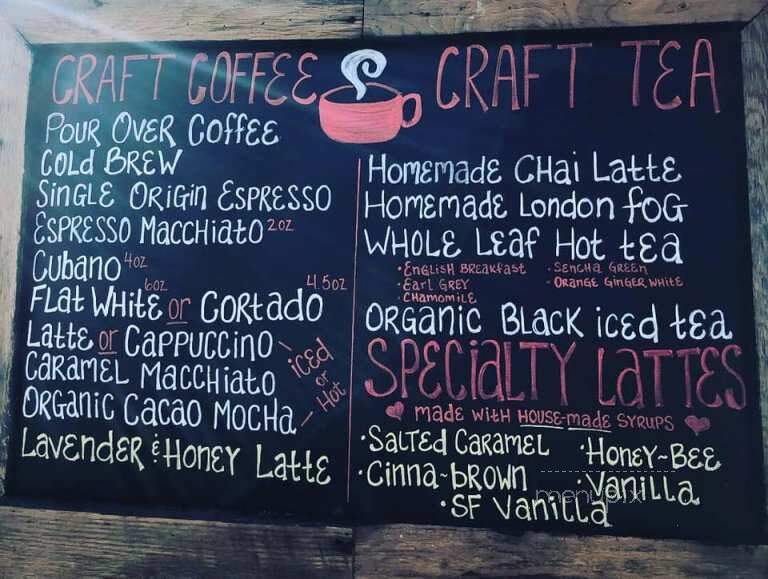 CRAFT COFFEE
POUR OVER COFFEE
COLD BREW
SINGLE ORIGIN ESPRESSO
ESPRESSO MACCHIATO 2oz
CUBANO 4oz
6oz 4.5oz
FLAT WHITE or CORTADO
LATTE or CAPPUCCINO
CARAMEL MACCHIATO
ORGANIC CACAO MOCHA
iCED
or
HOT
LAVENDER & HONEY LATTE
CRAFT TEA
HOMEMADE CHAi LATTE
HOMEMADE LONDON FOG
WHOLE LEAF HOT tEa
• ENGLISH BREAKFAST • SENCHA GREEN
• EARL GREY • ORANGE GINGER WHITE
• CHAMOMILE
ORGANIC BLACK iCED tEa
SPECiaLTY LaTTES
MADE WITH HOUSE-MADE SYRUPS
• SALTED CARAMEL • HONEY~BEE
• CINNA~BROWN • VANILLA
• SF VANILLA
menupix